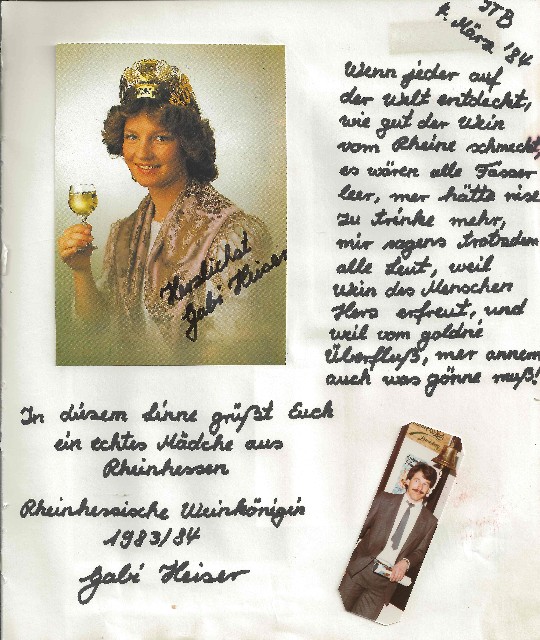 ITB
4. März '84
Wenn jeder auf
der Welt entdeckt,
wie gut der Wein
vom Rheine schmeckt,
es wären alle Fässer
leer, mer hätte nise
zu trinke mehr,
mir sagens trotzdem
alle Leut, weil
Wein des Menschen
Herz erfreut, und
weil vom goldné
Überfluß, mer annern
auch was gönne muß!
Herzlichst
Gabi Heiser
In diesem Sinne grüßt Euch
ein echtes Mädche aus
Rheinhessen
Rheinhessische Weinkönigin
1983/84
Gabi Heiser